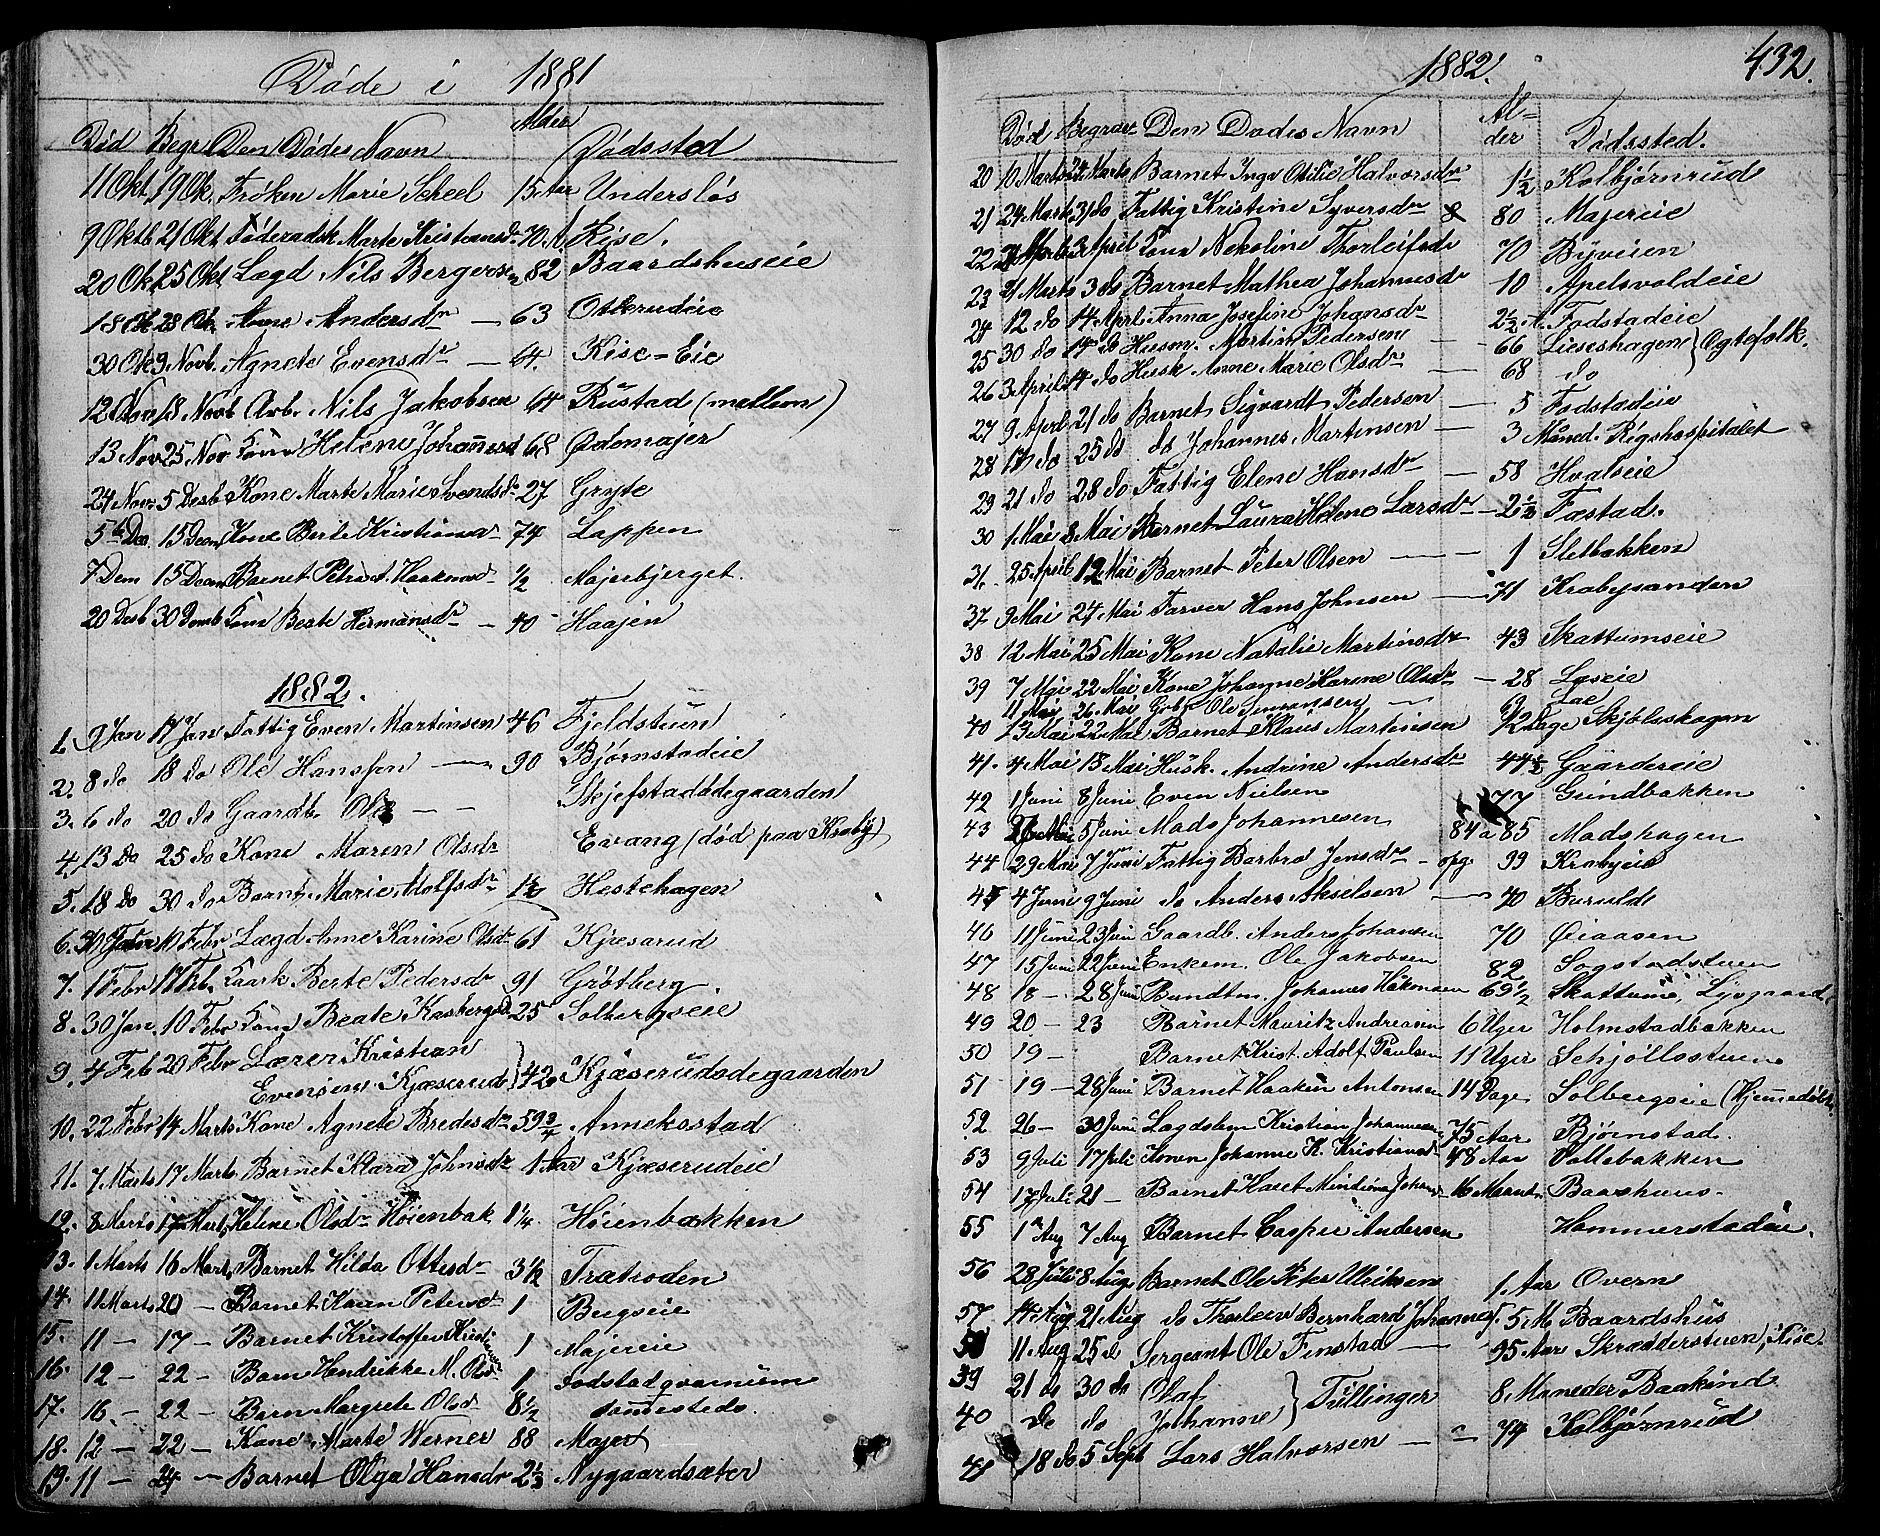 Døde i 1881
Død Begr Den Dødes Navn Alder Dødssted
11 Okt 19 Ok. Frøken Marie Scheel 15 Aar Undersløs
9 Oktb 21 Okt Føderaadsk Marte Kristensd 70 A Kise.
20 Okt 25 Okt Lægd Nils Bergersen 82 Baardshuseie
18 Ok 28 Ok Anne Andersdr — 63 Ottkrudeie
30 Okt 9 Novb. Agnete Evensdr — 64. Kise-Eie
12 Nov 18 Novb Arb. Nils Jakobsen 64 Rustad (mellem)
13 Nov 25 Nov Kone Helene Johannesd 68 Ødemajer
24 Nov 5 Desb Kone Marte Marie Svendsdr 27 Gryte
5te Des. 15 Decem Kone Berte Kristiansdr 74 Lappen
7 Dem 15 Decem Barnet Petra Haakensd ½ Majerbjerget.
20 Desb 30 Desmb Kone Beate Hermansdr — 40 Haajen
1882.
1. 9 Jan 17 Jan Fattig Even Martinsen 46 Fjeldstuen
2, 8 do 18 do Ole Hanssen — 90 Bjørnstadeie
3. 6 do 20 do Gaardb. Ole — — Skjefstadødegaarden
4, 13 Do 25 do Kone Maren Olsdr Evang (død paa Kraby)
5. 18 Do 30 do Barnt Marie Adolfsdr 1½ Hestehagen
6. 30 Janr 10 Febr Lægd Anne Karine Olsdr 61 Kjæserud
7. 1 Febr 17 Feb. Kaark Berte Pedersdr 91 Grøtberg
8. 30 Jan. 10 Febr Kone Beate Kasbergsd 25 Solbergseie
9. 4 Feb 20 Febr Lærer Kristian
Evensen Kjæserud } 42 Kjæserudødegaarden
10. 22 Febr 14 Marts Kone Agnete Bredesdr 59¾ Annekstad
11. 7 Marts 17 Marts Barnet Klara Johnsdr 1 Aar Kjæserudeie
12. 8 Marts 17 Marts Helene Olsdr Høienbak 1¼ Høienbakken
13. 1 Marts 16 Mart. Barnet Hilda Ottesdr 3½ Trætroden
14. 11 Marts 20 — Barnet Karen Petersdr 1 Bugseie
15. 11 — 17 — Barnet Kristoffer Kristiansen 1 Majereie
16. 12 — 22 — Barn Hendrikke M. Olsd 1 Fodstadqværnum
17. 16 — 22 — Barn Margrete Olsdr 8½ sammesteds.
18. 12 — 22 — Kone Marte Werner 88 Majer
19. 11 — 24 — Barnet Olga Hansdr 2⅓ Nygaardsæter
1882. 432.
Død Begravet Den Dødes Navn Alder Dødssted.
20 10 Marts 24 Marts Barnet Inga Otilie Halvorsdr 1½ Kolbjørnrud
21 24 Mart 31 do Fattig Kristine Syversdr 80 Majereie
22 21 Marts 3 April Kone Nekoline Thorleifsdr 70 Byveien
23 21 Marts 3 do Barnet Mathea Johannesdr 10 Apelsvoldeie
24 12 do 14 Aprl Anna Josefine Johansdr 2½ A. Fodstadeie
25 30 do 14 do Husm. Martin Pedersen — 66 Lieseshagen } Ægtefolk.
26 3 April 14 do Husk Anne Marie Olsdr — 68 do
27 9 April 21 do Barnet Sigvardt Pedersen — 5 Fodstadeie
28 17 do 25 do do Johannes Martinsen — 3 Maaned. Rigshospitalet
29 21 do 28 do Fattig Elene Hansdr — 58 Hvalseie
30 1 Mai 8 Mai Barnet Laura Helene Larsdr — 2½ Fæstad.
31. 25 April 12 Mai Barnet Peter Olsen — — 1 Sletbakken
37 9 Mai 24 Mai Farver Hans Johnsen — 71 Krabysanden
38 12 Mai 25 Mai Kone Natalie Martinsdr 43 Skattumseie
39 7 Mai 22 Mai Kone Johanne Karine Olsdr — 28 Læseie
11 Mai 26 Mai Grbr Ole — Lae
40 13 Mai 22 Mai Barnet Klaus Martinsen 12 Dage Skjølashagen
41. 4 Mai 13 Mai Husk. Andrine Andersdr 44½ Gaardereie
42 1 Juni 8 Juni Even Nielsen 77 Grindbakken
43 26 Mai 5 Juni Mads Johannesen 84 a 85 Madshagen
44 29 Mai 7 Juni Fattig Barbra Jensdr — opg. 99 Krabyeie
45 4 Juni 9 Juni do Anders Akselsen — 40 Burulde
46 11 Juni 23 Juni Gaardb. Anders Johansen 70 Øiaasen
47 15 Juni 22 Juni Enkem. Ole Jakobsen 82 Sogstadstuen
48 18 — 28 Juni Rundtm. Johannes Håkonsen 69½ Skattum, Lysgaard
49 20 — 23 Barnet Mauritz Andreassen 6 Uger Holmstadbakken
50 19 — Barnet Krist. Adolf Paulsen 11 Uger Schjøllsstuen
51 19 — 28 Juni Barnet Haaken Antonsen 14 Dage Solbergseie (Hjemmedøbt)
52 26 — 30 Juni Lægdslem Kristian Johannesen 75 Aar Bjørnstad.
53 9 Juli 17 Juli Konen Johanne K. Kristiansdr 48 Aar Vollebakken
54 17 Juli 21 — Barnet Karet Mindine Johansd 16 Maaned. Baashaus.
55 1 Aug 7 Aug Barnet Casper Andersen Hammerstadeie.
56 28 Juli 8 Aug. Barnet Ole Peter Ulriksen 1. Aar Overn
57. 14 Aug 21 Aug do Thorleiv Bernhard Johannes. 5 M Baardshus
58 11 Aug 25 do Sergeant Ole Finstad — 95 Aar Skrædderstuen, Kise.
39 21 do 30 do Olaf } Tillinger 8 Maaneder Baakind
40 do do Johanne
41 18 do 5 Sept Lars Halvorsen — — 74 Kolbjørnrud